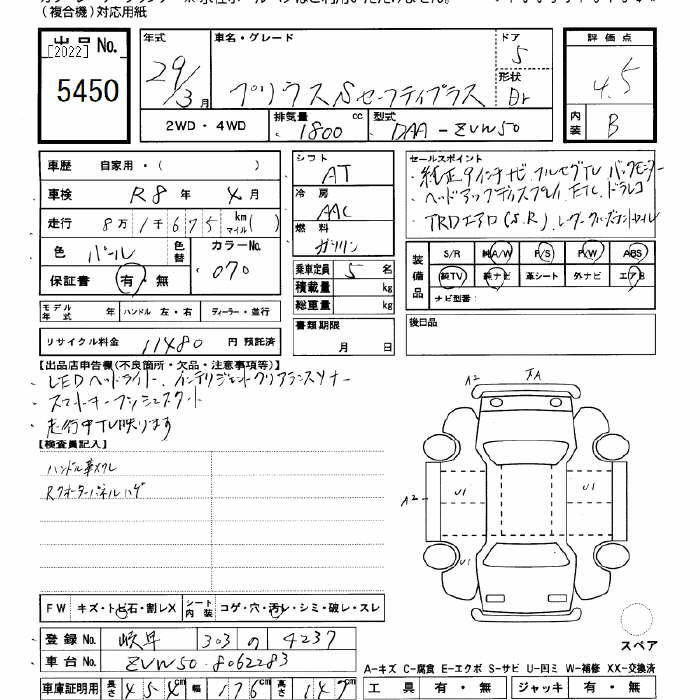 （複合機）対応用紙
出品No. [2022] 5450
年式 29/3月
車名・グレード プリウス Sセーフティプラス
ドア 5
形状
評価点 4.5
内装 B
2WD・4WD 排気量 1800 cc 型式 DAA-ZVW50
車歴 自家用・（ ）
車検 R8年4月
走行 8万1千675 km マイル（ ）
色 パール 色替 カラーNo. 070
保証書 有・無
シフト AT
冷房 AAC
燃料 ガソリン
乗車定員 5名
積載量 kg
総重量 kg
書類期限 月 日
セールスポイント
・純正9インチナビ フルセグTV バックモニター
・ヘッドアップディスプレイ、ETC、ドラレコ
・TRDエアロ(S.R)、レーダークルーズコントロール
装備品 S/R 純A/W P/S P/W ABS
純TV 純ナビ 革シート 外ナビ エアB
ナビ型番：
後日品
モデル年式 年 ハンドル 左・右 ディーラー・並行
リサイクル料金 11480 円 預託済
【出品店申告欄(不良箇所・欠品・注意事項等)】
・LEDヘッドライト、インテリジェントクリアランスソナー
・スマートキープッシュスタート
・走行中TV映ります
【検査員記入】
ハンドル革スレ
Rクオーターパネルハゲ
A2 U1 A2 U1 U1
FW キズ・トビ石・割レX シート内装 コゲ・穴・汚レ・シミ・破レ・スレ
登録No. 岐阜 303 の 4237
車台No. ZVW50-8062283
車庫証明用 長さ 454cm 幅 176cm 高さ 147cm
スペア
A－キズ C－腐食 E－エクボ S－サビ U－凹ミ W－補修 XX－交換済
工具 有・無 ジャッキ 有・無